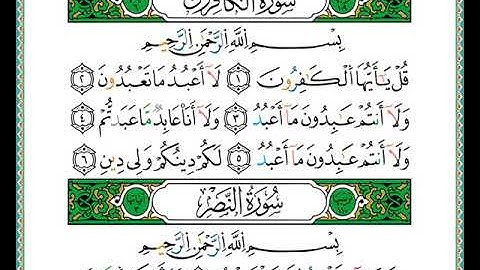 سُورَةُ الْكَافِرُونَ
بِسْمِ اللَّهِ الرَّحْمَٰنِ الرَّحِيمِ
قُلْ يَا أَيُّهَا الْكَٰفِرُونَ ١ لَا أَعْبُدُ مَا تَعْبُدُونَ ٢
وَلَا أَنتُمْ عَٰبِدُونَ مَا أَعْبُدُ ٣ وَلَا أَنَا عَابِدٌ مَّا عَبَدتُّمْ ٤
وَلَا أَنتُمْ عَٰبِدُونَ مَا أَعْبُدُ ٥ لَكُمْ دِينُكُمْ وَلِيَ دِينِ ٦
سُورَةُ النَّصْرِ
بِسْمِ اللَّهِ الرَّحْمَٰنِ الرَّحِيمِ